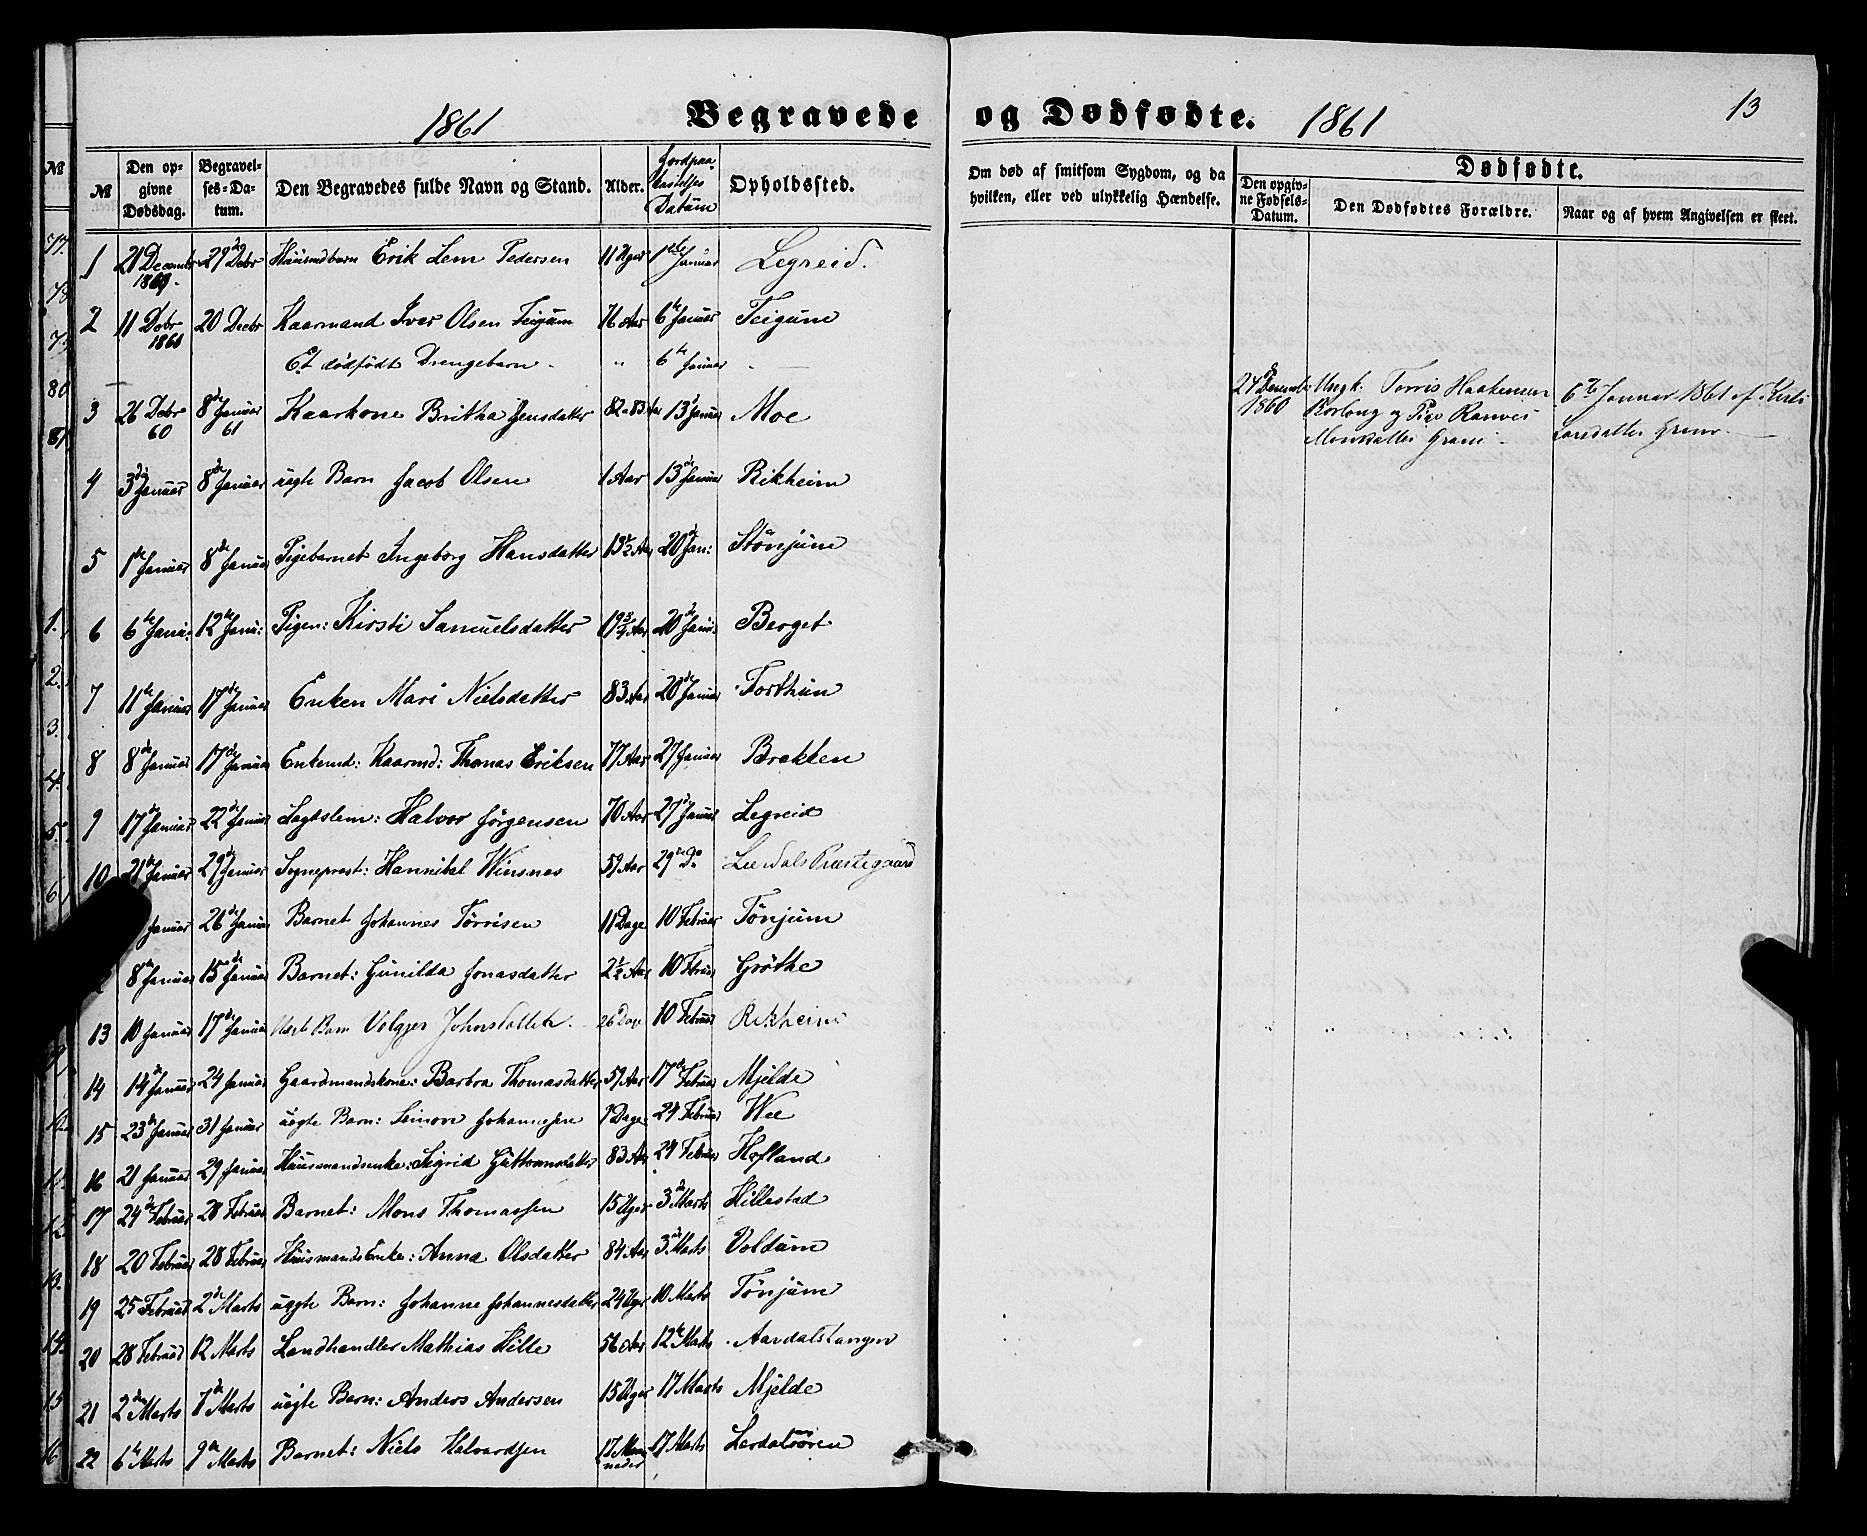 1861 Begravede og Dødfødte. 1861 13
№ Den opgivne Dødsdag. Begravelses-Datum. Den Begravedes fulde Navn og Stand. Alder. Jordpaa Datum Opholdssted. Om død af smitsom Sygdom, og da hvilken, eller ved ulykkelig Hændelse. Dødfødte. Den opgivne Fødsels-Datum. Den Dødfødtes Forældre. Naar og af hvem Angivelsen er skeet.
1 21 Decembr 29 Debr Huusmdbarn Erik Lem Pedersen 11 Uger 1ste Januar Legreid.
2 11 Debr 20 Decbr Kaarmand Iver Olsen Teigum 76 Aar 6te Januar Teigum
1860
Et dødfødt Drengebarn - " 6te Januar -
24de Decemb: 1860 Ungk: Torris Haakensen og Pige Monsdatter 6te Januar 1861 af
3 26 Debr 60 8de Januar 61 Kaarkone Britha Jensdatter 82-83 Aar 13 Januar Moe
4 3die Januar 8de Januar uegte Barn Jacob Olsen 1 Aar 13de Januar Rikheim
5 1ste Januar 8de Januar Pigebarnet Ingeborg Hansdatter 13½ Aar 20de Jan: Stønjum
6 6te Janu: 12te Janu: Pigen: Kirsti Samuelsdatter 19¾ Aar 20de Janu: Berget
7 11te Januar 17de Januar Enken Mari Nielsdatter 83 Aar 20de Januar Forthun
8 8de Januar 17de Januar Enkemd: Kaarmd: Thomas Eriksen 77 Aar 27 Januar Brekken
9 17de Januar 22de Januar Lægdslem: Halvor Jørgensen 70 Aar 27de Januar Legreid
10 21de Januar 29de Januar Sogneprest: Hannibal Winsnes 59 Aar 29de Do Leirdals Præstegaard
Januar 26de Januar Barnet Johannes Torrisen 11 Dage 10 Februar Tønjum
8de Januar 15de Januar Barnet: Gunilda Jonasdatter 2½ Aar 10 Februar Grøthe
13 10 Januar 17de Januar Uegte Barn Johnsdatter 26 Dage 10 Februar Rikheim
14 14de Januar 24 Januar Gaardmandskone: Barbra Thomasdatter 59 Aar 17de Februar Mjelde
15 23de Januar 31 Januar uegte Barn: Simon Johannesen Dage 24 Februar Wee
16 21 Januar 29 Januar Huusmandsenke: Sigrid Guttormsdatter 83 Aar 24 Februar Hofland
17 24de Februar 28 Februar Barnet: Mons Thomassen 15 Uger 3die Marts Hillestad
18 20 Februar 28 Februar Huusmands Enke: Anna Olsdatter 84 Aar 3die Marts Voldum
19 25 Februar 2de Marts uegte Barn: Johanne Johannesdatter 24 Uger 10 Marts Tønjum
20 28 Februar 12 Marts Landhandler Mathias Hille 56 Aar 12te Marts Aardalstangen
21 2den Marts 7de Marts uegte Barn: Anders Andersen 15 Uger 17 Marts Mjelde
22 6te Marts 9de Marts Barnet: Niels Halvardsen 17 Maaneder 17 Marts Lerdalsøren